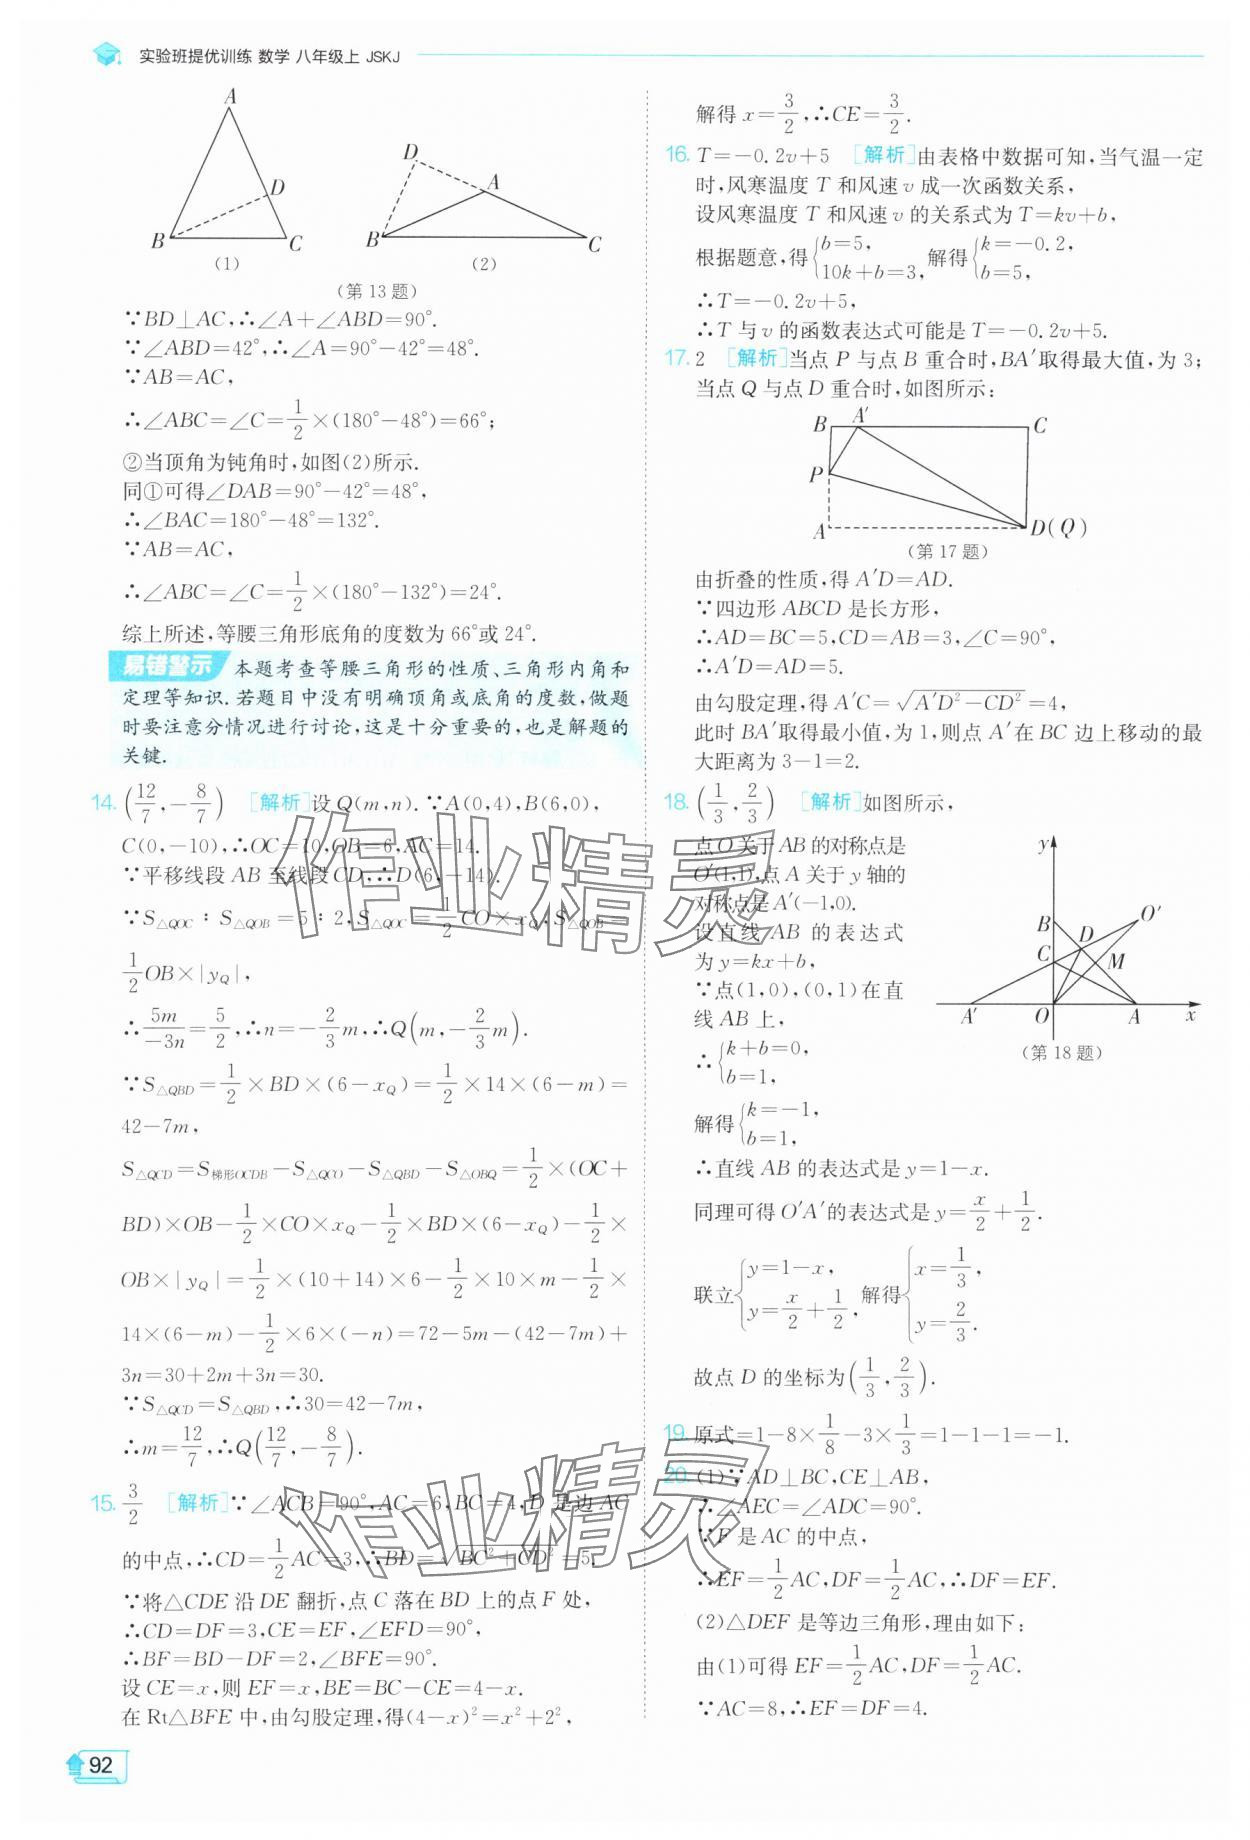 实验班提优训练 数学 八年级上 JSKJ
A
D
B
C
(1)
D
A
B
C
(2)
(第13题)
∵BD⊥AC,∴∠A+∠ABD=90°.
∵∠ABD=42°,∴∠A=90°-42°=48°.
∵AB=AC,
∴∠ABC=∠C=1/2×(180°-48°)=66°;
②当顶角为钝角时,如图(2)所示.
同①可得∠DAB=90°-42°=48°,
∴∠BAC=180°-48°=132°.
∵AB=AC,
∴∠ABC=∠C=1/2×(180°-132°)=24°.
综上所述,等腰三角形底角的度数为66°或24°.
易错警示 本题考查等腰三角形的性质、三角形内角和
定理等知识.若题目中没有明确顶角或底角的度数,做题
时要注意分情况进行讨论,这是十分重要的,也是解题的
关键.
14. (12/7,-8/7) [解析]设Q(m,n).∵A(0,4),B(6,0),
C(0,-10),∴OC=10,OB=6,AC=14.
∵平移线段AB至线段CD,∴D(6,-14).
∵S△QOC∶S△QOB=5∶2,S△QOC=1/2CO×xQ,S△QOB=
1/2OB×|yQ|,
∴5m/-3n=5/2,∴n=-2/3m,∴Q(m,-2/3m).
∵S△QBD=1/2×BD×(6-xQ)=1/2×14×(6-m)=
42-7m,
S△QCD=S梯形OCDB-S△QCO-S△QBD-S△OBQ=1/2×(OC+
BD)×OB-1/2×CO×xQ-1/2×BD×(6-xQ)-1/2×
OB×|yQ|=1/2×(10+14)×6-1/2×10×m-1/2×
14×(6-m)-1/2×6×(-n)=72-5m-(42-7m)+
3n=30+2m+3n=30.
∵S△QCD=S△QBD,∴30=42-7m,
∴m=12/7,∴Q(12/7,-8/7).
15. 3/2 [解析]∵∠ACB=90°,AC=6,BC=4,D是边AC
的中点,∴CD=1/2AC=3,∴BD=√(BC²+CD²)=5.
∵将△CDE沿DE翻折,点C落在BD上的点F处,
∴CD=DF=3,CE=EF,∠EFD=90°,
∴BF=BD-DF=2,∠BFE=90°.
设CE=x,则EF=x,BE=BC-CE=4-x.
在Rt△BFE中,由勾股定理,得(4-x)²=x²+2²,
92
解得x=3/2,∴CE=3/2.
16. T=-0.2v+5 [解析]由表格中数据可知,当气温一定
时,风寒温度T和风速v成一次函数关系,
设风寒温度T和风速v的关系式为T=kv+b,
根据题意,得{b=5, 10k+b=3, 解得{k=-0.2, b=5,
∴T=-0.2v+5,
∴T与v的函数表达式可能是T=-0.2v+5.
17. 2 [解析]当点P与点B重合时,BA′取得最大值,为3;
当点Q与点D重合时,如图所示:
B
A′
C
P
A
D(Q)
(第17题)
由折叠的性质,得A′D=AD.
∵四边形ABCD是长方形,
∴AD=BC=5,CD=AB=3,∠C=90°,
∴A′D=AD=5.
由勾股定理,得A′C=√(A′D²-CD²)=4,
此时BA′取得最小值,为1,则点A′在BC边上移动的最
大距离为3-1=2.
18. (1/3,2/3) [解析]如图所示,
点O关于AB的对称点是
O′(1,1),点A关于y轴的
对称点是A′(-1,0).
设直线AB的表达式
为y=kx+b,
∵点(1,0),(0,1)在直
线AB上,
∴{k+b=0, b=1,
解得{k=-1, b=1,
y
B
D
O′
C
M
A′
O
A
x
(第18题)
∴直线AB的表达式是y=1-x.
同理可得O′A′的表达式是y=x/2+1/2.
联立{y=1-x, y=x/2+1/2, 解得{x=1/3, y=2/3.
故点D的坐标为(1/3,2/3).
19. 原式=1-8×1/8-3×1/3=1-1-1=-1.
20. (1)∵AD⊥BC,CE⊥AB,
∴∠AEC=∠ADC=90°.
∵F是AC的中点,
∴EF=1/2AC,DF=1/2AC,∴DF=EF.
(2)△DEF是等边三角形,理由如下:
由(1)可得EF=1/2AC,DF=1/2AC.
∵AC=8,∴EF=DF=4.
作业精灵
作业精灵